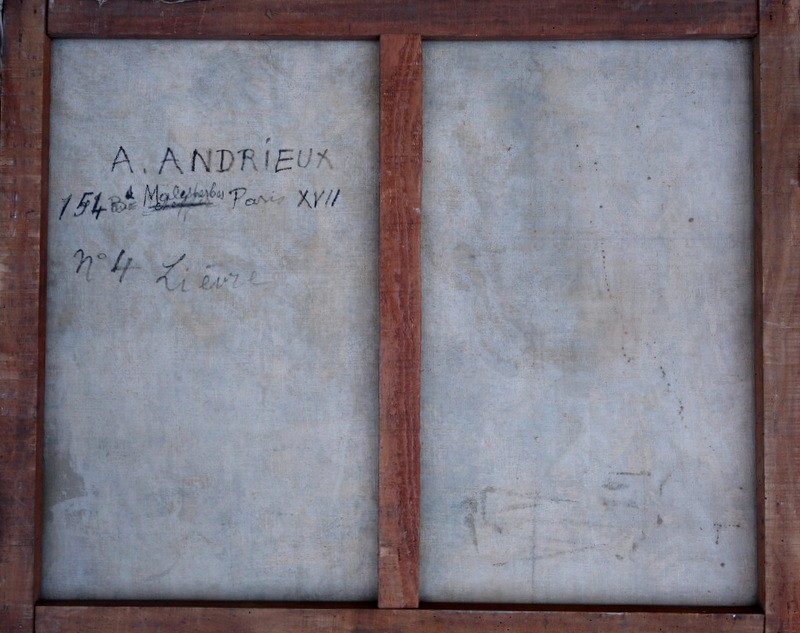 A. ANDRIEUX
154 Bd Malesherbes Paris XVII
N° 4 Lièvre